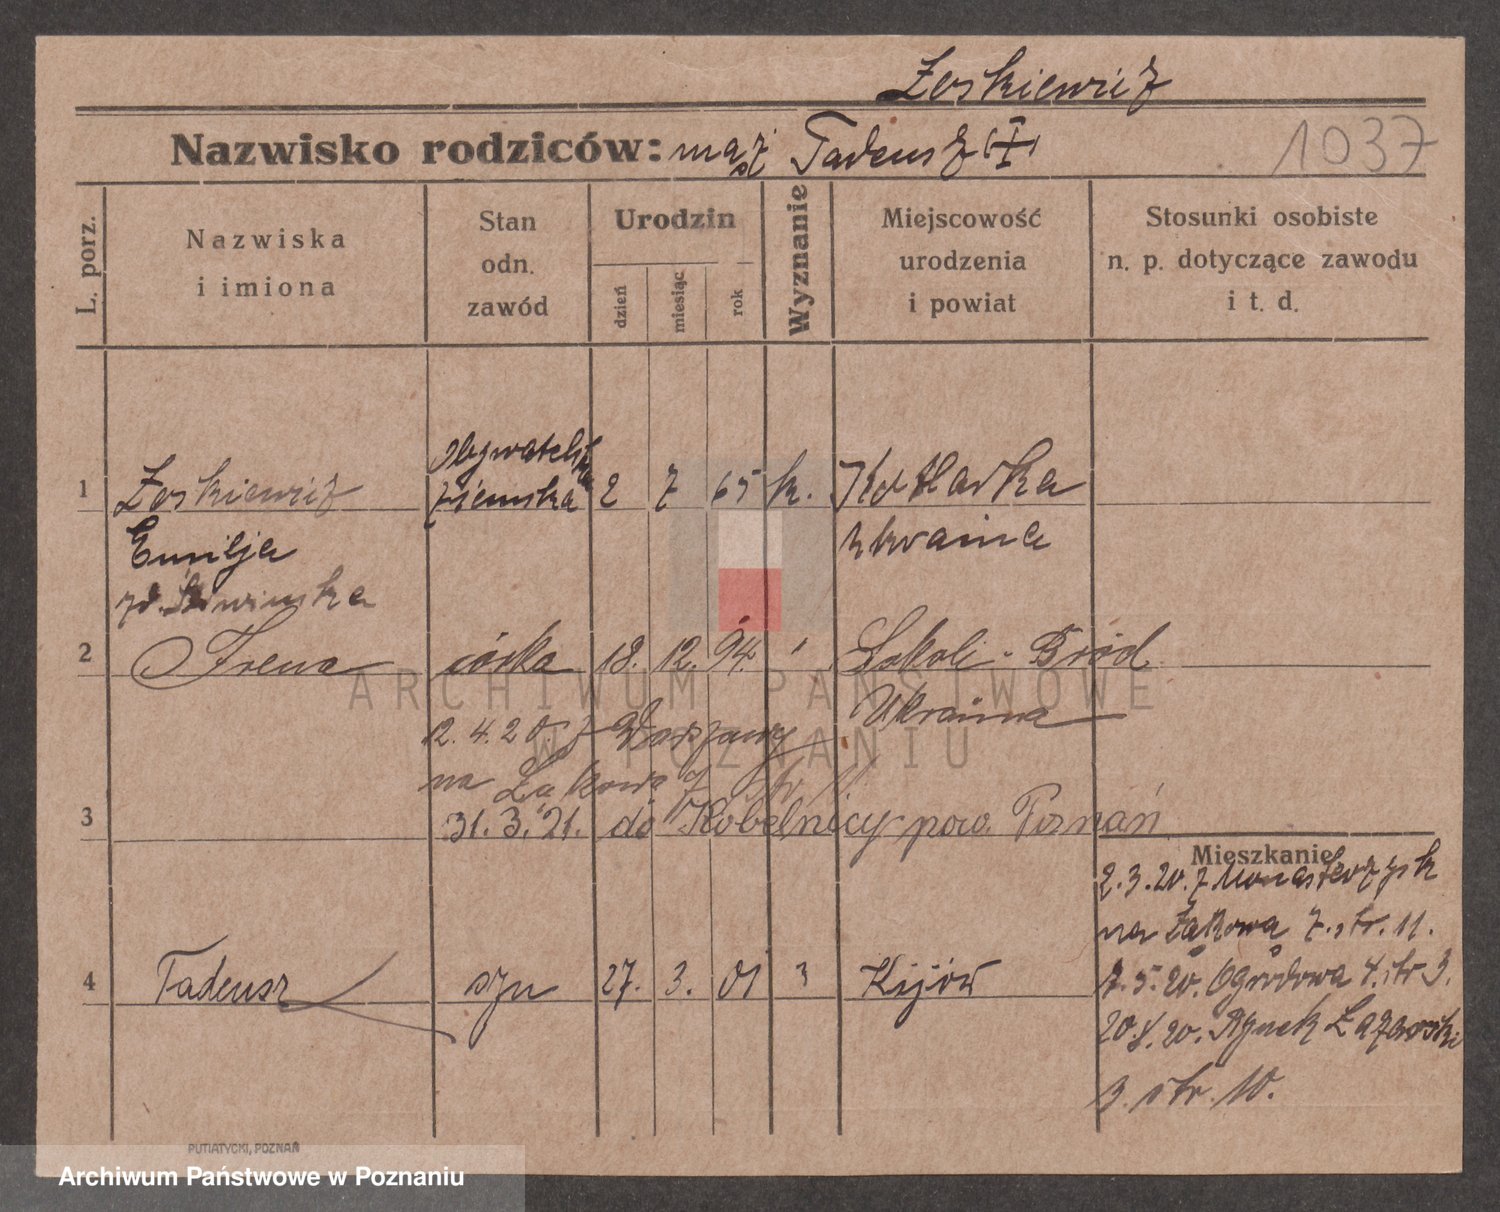 Zoskiewicz
Nazwisko rodziców: mąż Tadeusz (†)
1037
L. porz.
Nazwiska
i imiona
Stan
odn.
zawód
Urodzin
dzień
miesiąc
rok
Wyznanie
Miejscowość
urodzenia
i powiat
Stosunki osobiste
n. p. dotyczące zawodu
i t. d.
Obywatelka
1 Zoskiewicz ziemska 2 7 65 k. Kotlarka
Emilja Ukraina
2 Irena córka 18. 12. 94. Sokoli-Bród
Ukraina
12. 4. 20. z Warszawy
na Łąkowa 7 str 11
3 31. 3. 21. do Kobelnicy pow. Poznań
Mieszkanie
2. 3. 20. z Monasterzysk
na Łąkowa 7. str. 11.
4 Tadeusz syn 27. 3. 01 Kijów
7. 5. 20. Ogrodowa 4. str 3.
20. 20. Rynek Łazarski
3. str. 10.
PUTIATYCKI, POZNAŃ
ARCHIWUM PAŃSTWOWE
W POZNANIU
Archiwum Państwowe w Poznaniu